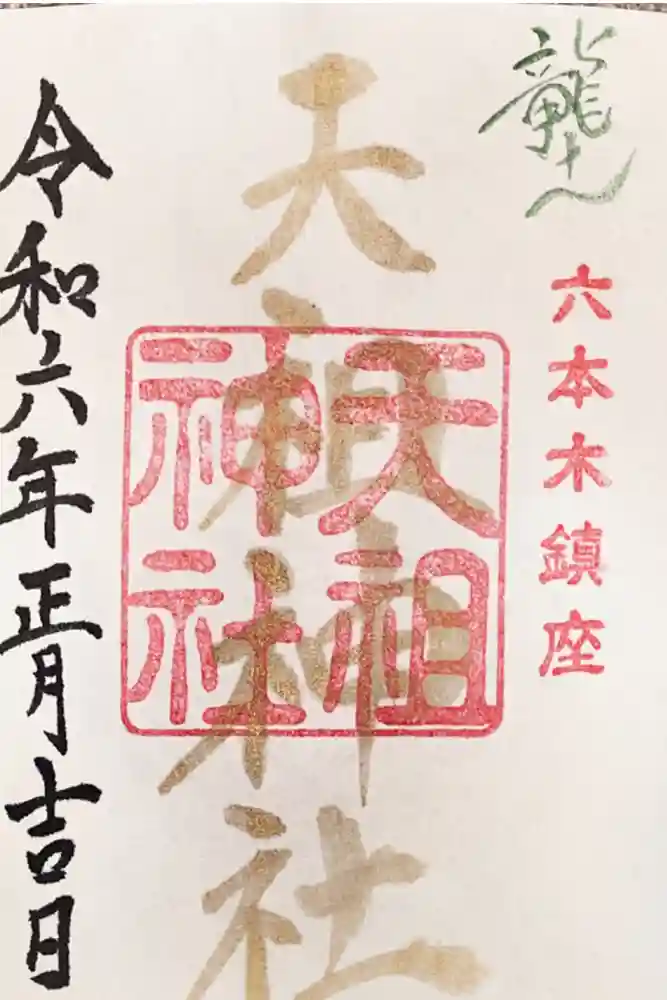 龍土
六本木鎮座
天祖神社
天祖
神社
令和六年正月吉日